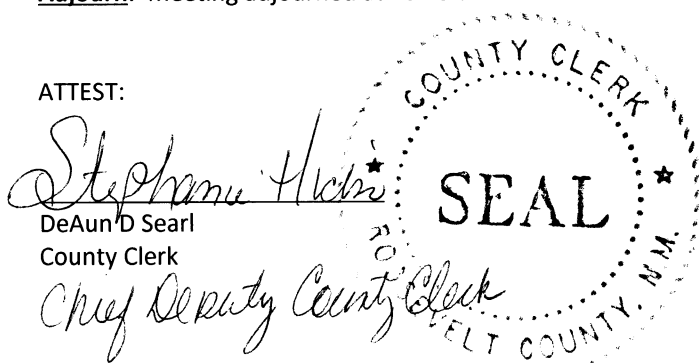 Meeting adjourned
ATTEST:
Stephanie Hicks
DeAun D Searl
County Clerk
Chief Deputy County Clerk
COUNTY CLERK
SEAL
ROOSEVELT COUNTY, N.M.